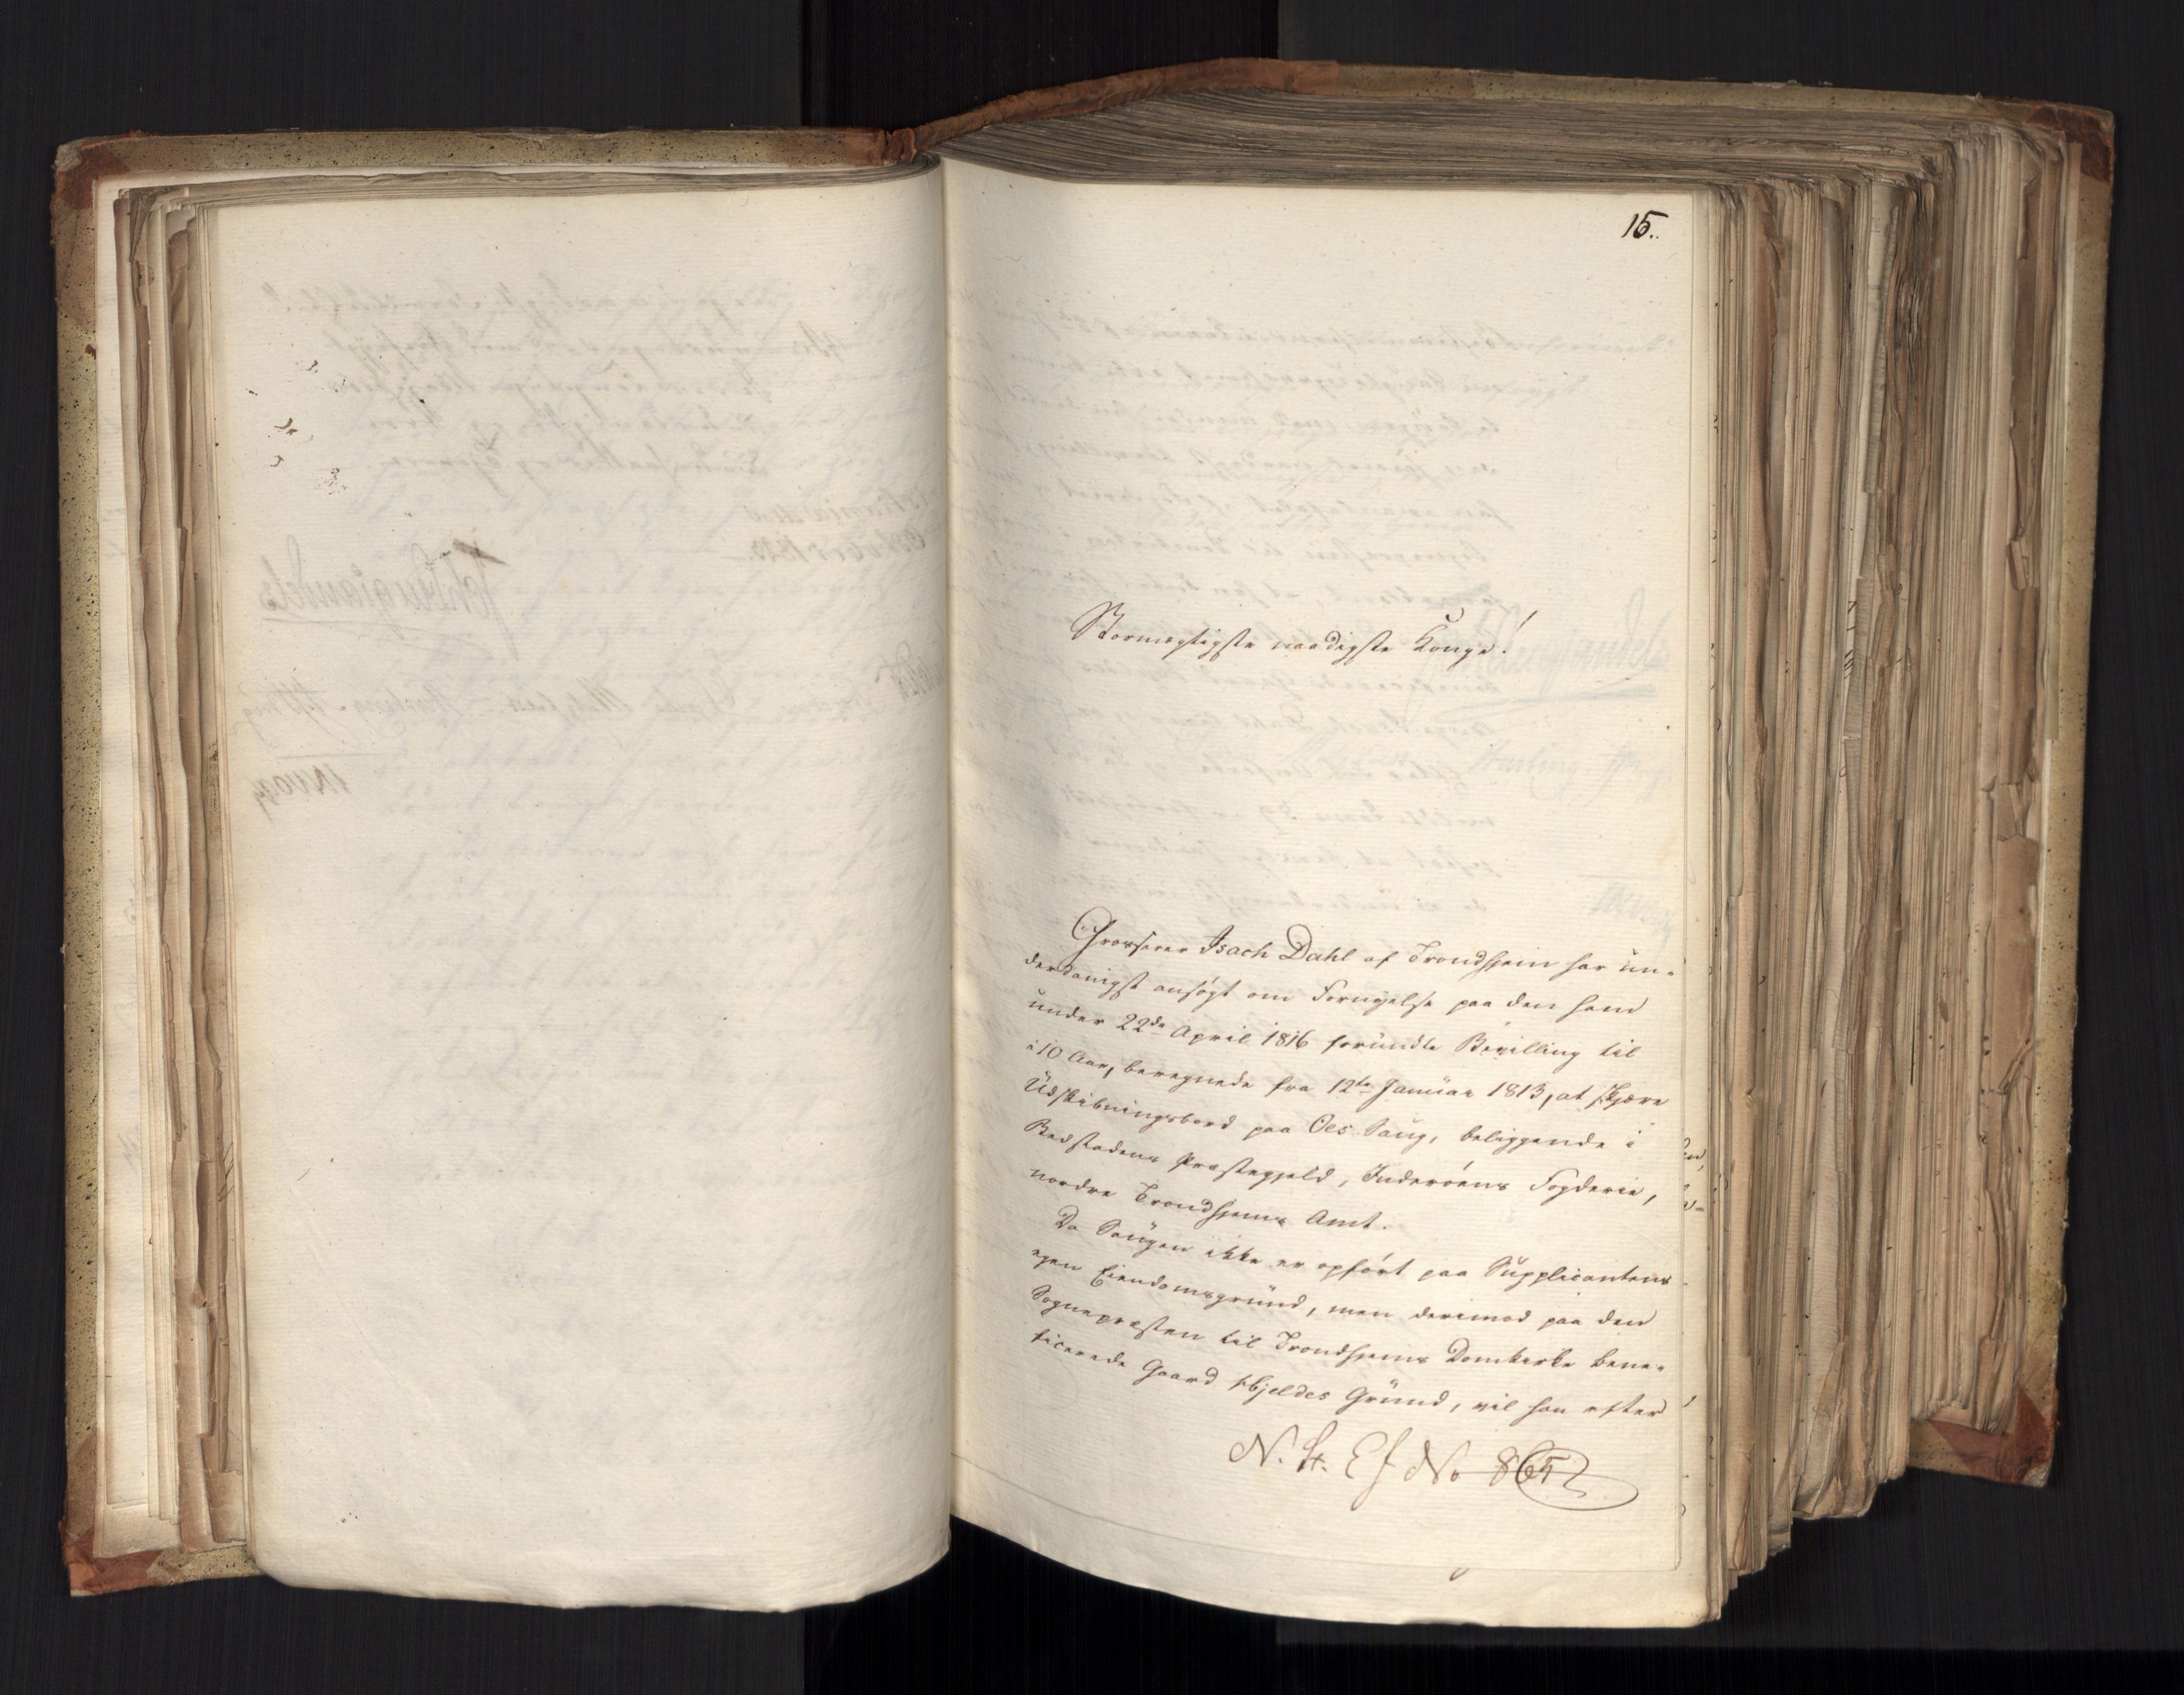 15.
Stormægtigste naadigste Konge!
Grosserer Isach Dahl af Trondhjem har un-
derdanigst ansøgt om Fornyelse paa den ham
under 22de April 1816 forundte Bevilling til
i 10 Aar, beregnede fra 12te Januar 1813, at skjære
Udskibningsbord paa Oes Saug, beliggende i
Bedstadens Præstegjeld, Inderøens Fogderie,
nordre Trondhjems Amt.
Da Saugen ikke er opført paa Supplicantens
egen Eiendomsgrund, men derimod paa den
Sognepræsten til Trondhjems Domkirke bene-
ficerede Gaard Skjeldes Grund, vil han efter
N. St. Ex No 865